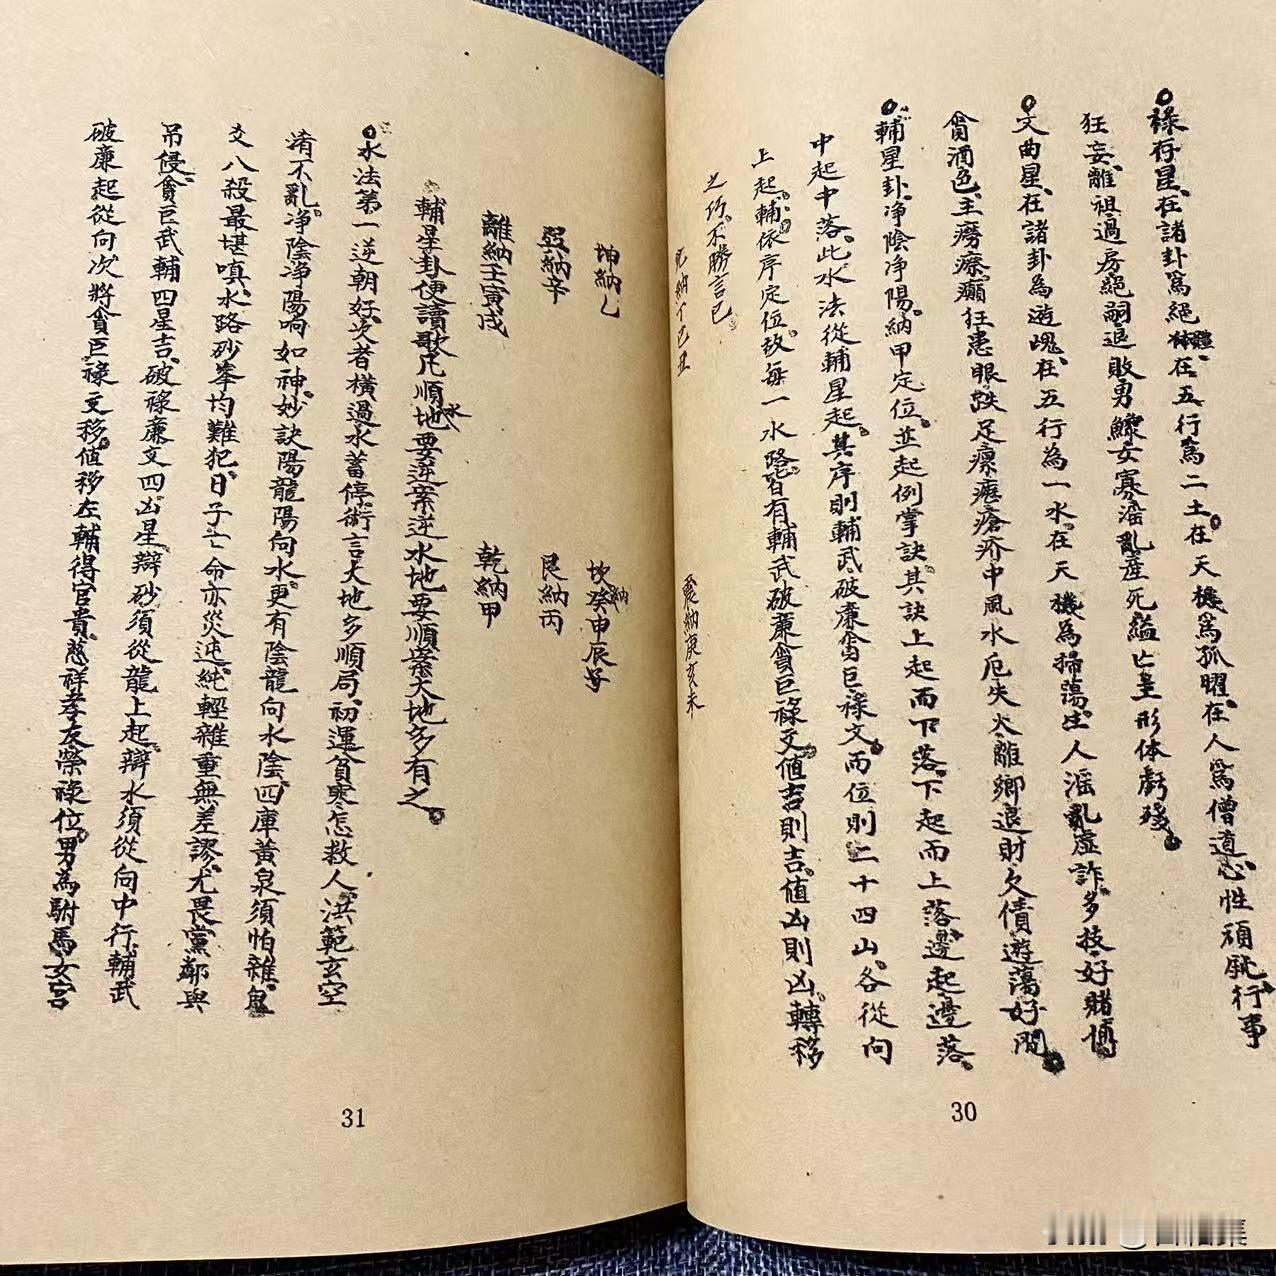 祿存星、在諸卦爲絕體、在五行爲二土。在天機爲孤曜、在人爲僧道、心性頑鈍、行事
狂妄、離祖過房、絕嗣退敗、男鰥女寡、淫亂產死、縊亡、主形体虧殘。
文曲星、在諸卦為遊魂、在五行為一水。在天機為掃蕩、生人淫亂虛詐、多技好賭博、
貪酒色、主癆瘵癲狂、患眼跌足、瘰癧瘡疥、中風水厄、失火離鄉、退財欠債、遊蕩好閒。
輔星卦、净陰净陽、納甲定位、並起例掌訣、其訣上起而下落、下起而上落、邊起邊落、
中起中落、此水法從輔星起。其序則輔武破廉貪巨祿文。而位則二十四山、各從向
上起。輔依序定位、故每一水路、皆有輔武破廉貪巨祿文、值吉則吉、值凶則凶、轉移
之巧、不勝言已。
兌納丁巳丑 震納庚亥未
坤納乙 坎納癸申辰子
巽納辛 艮納丙
離納壬寅戌 乾納甲
輔星卦便讀歌 凡順水地要逆案、逆水地要順案、大地多有之。
水法第一逆朝好、次者橫過水蓄停、術言大地多順局、初運貧寒怎救人、洪範玄空
淆不亂、净陰净陽响如神、妙訣陽龍陽向水、更有陰龍向水陰、四庫黃泉須怕雜、鬼
爻八殺最堪嗔、水路砂峯均難犯、日子亡命亦災迍、純輕雜重無差謬、尤畏黨鄰與
吊侵、貪巨武輔四星吉、破祿廉文四凶星、辯砂須從龍上起、辯水須從向中行、輔武
破廉起從向、次將貪巨祿文移。值移左輔得官貴、慈祥孝友榮祿位。男為駙馬女宮
31
30